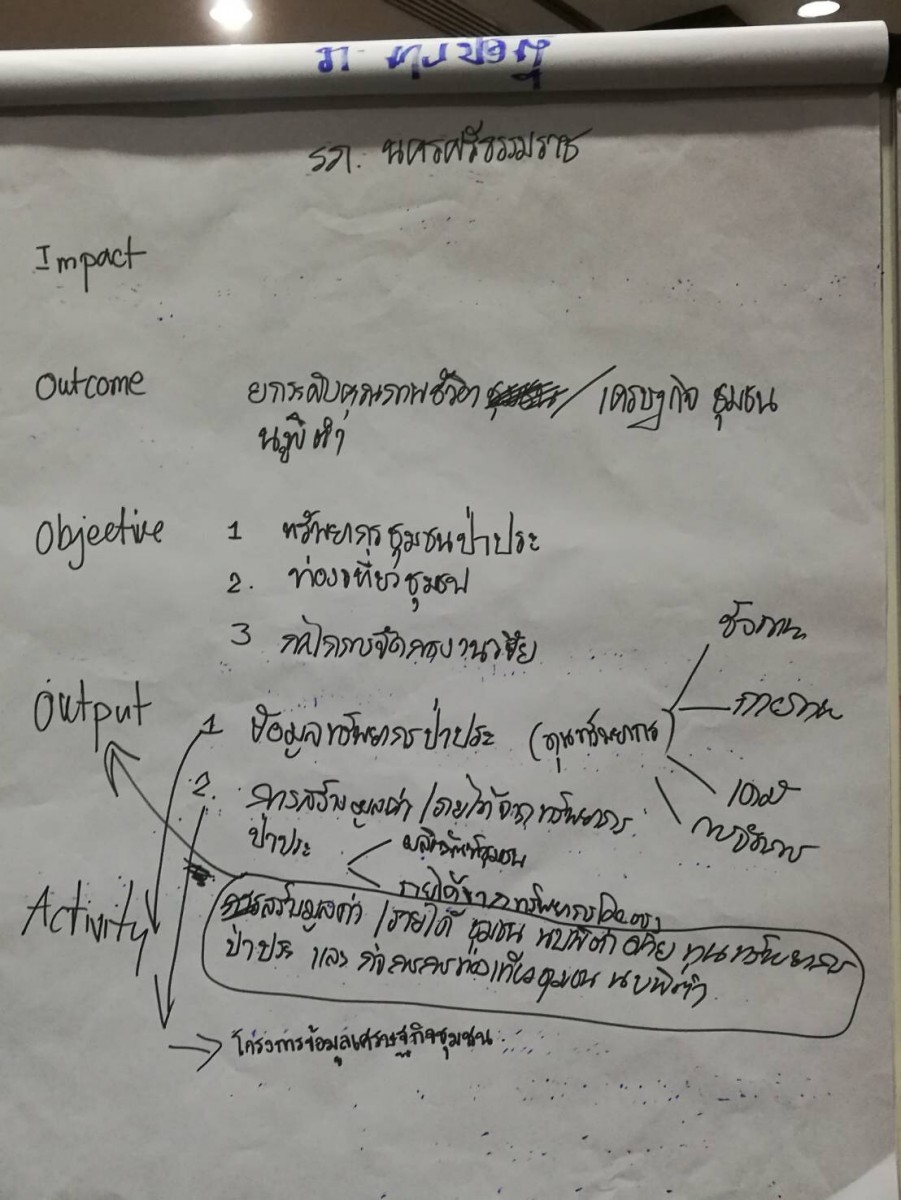 รภ. นครศรีธรรมราช
Impact
Outcome ยกระดับคุณภาพชีวิต / เศรษฐกิจ ชุมชน
นบพิตำ
Objective 1 ทรัพยากรชุมชนป่าประ
2. ท่องเที่ยวชุมชน
3 กลไกการจัดการงานวิจัย
Output 1 ข้อมูลทรัพยากรป่าประ (ทุนทรัพยากร
ชีวภาพ
กายภาพ
เคมี
การจัดการ
2. การสร้างมูลค่า /รายได้จากทรัพยากร
ป่าประ
ผลิตภัณฑ์ชุมชน
รายได้จากทรัพยากรโดยตรง
Activity
การสร้างมูลค่า /รายได้ ชุมชน นบพิตำ อาศัย ทุนทรัพยากร
ป่าประ และ กิจกรรมการท่องเที่ยวชุมชน นบพิตำ
→ โครงการข้อมูลเศรษฐกิจชุมชน